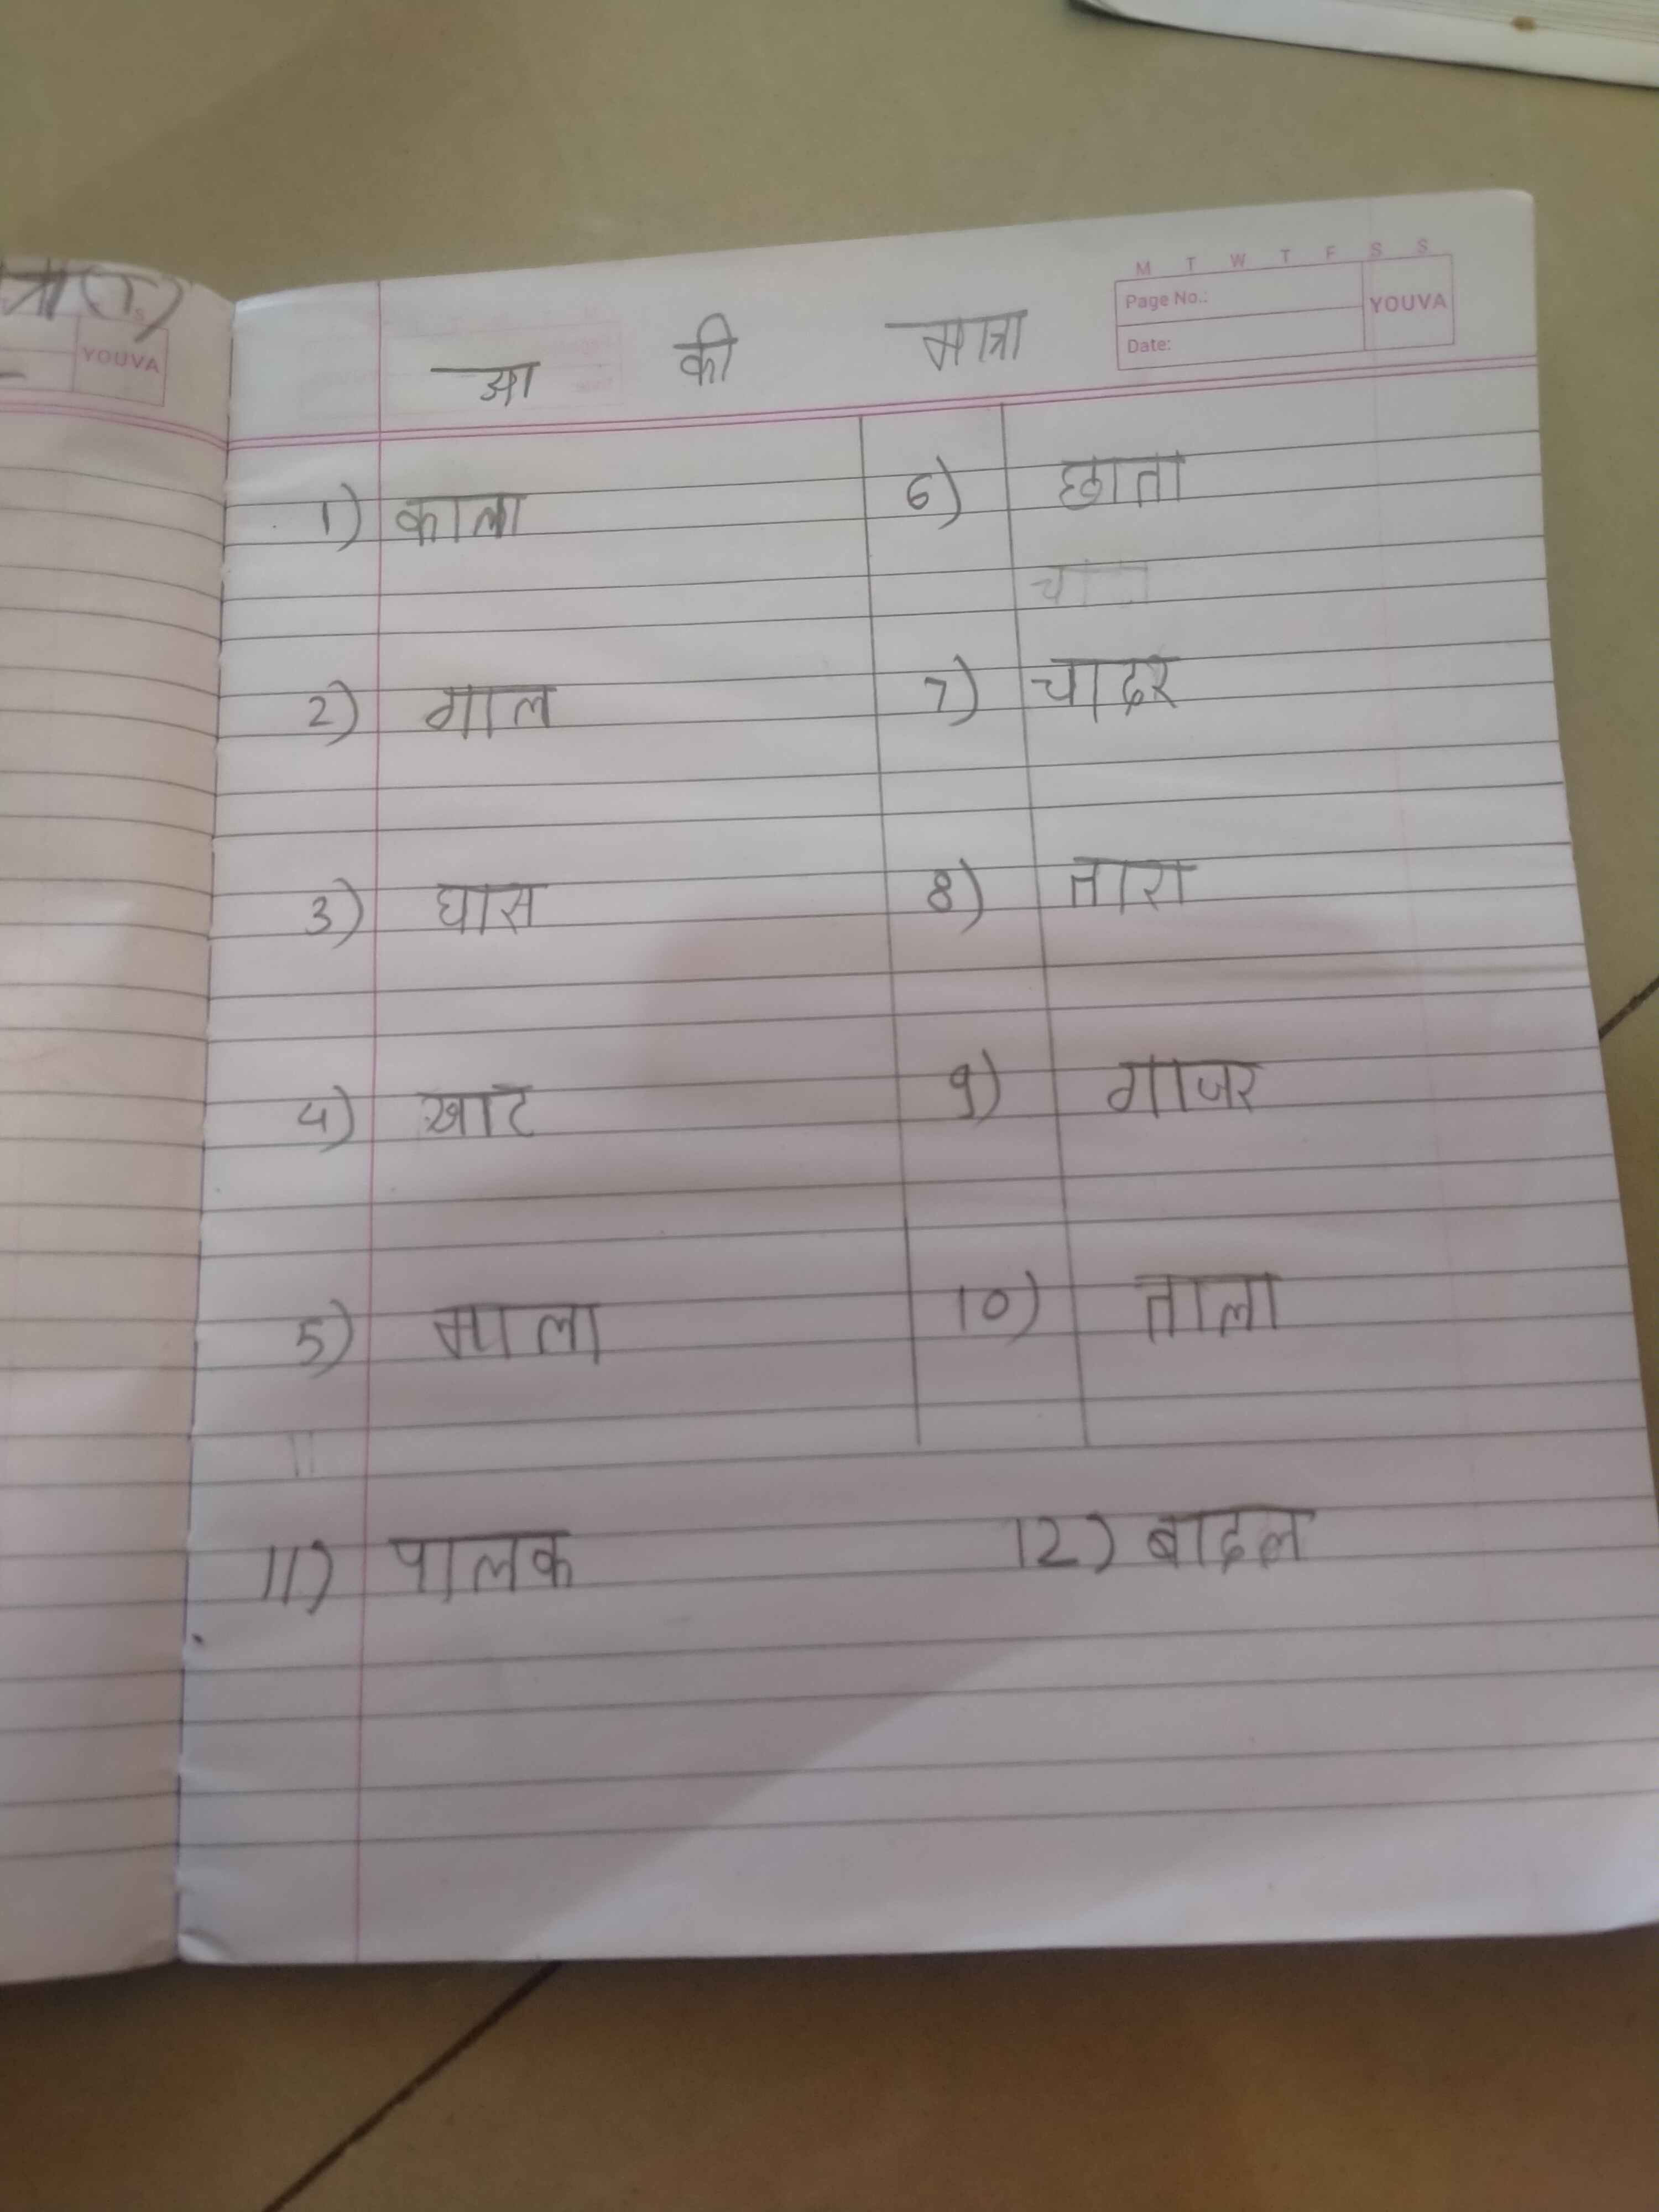 त्रा (ा)
YOUVA
M T W T F S S
Page No.:
YOUVA
Date:
आ की मात्रा
1) काला
6) छाता
2) गाल
7) चादर
3) घास
8) तारा
4) खाट
9) गाजर
5) माला
10) ताला
11) पालक
12) बादल